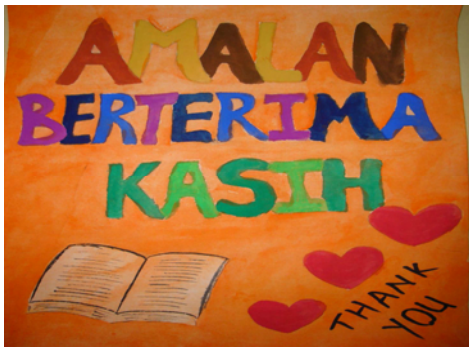 AMALAN
BERTERIMA
KASIH
THANK
YOU